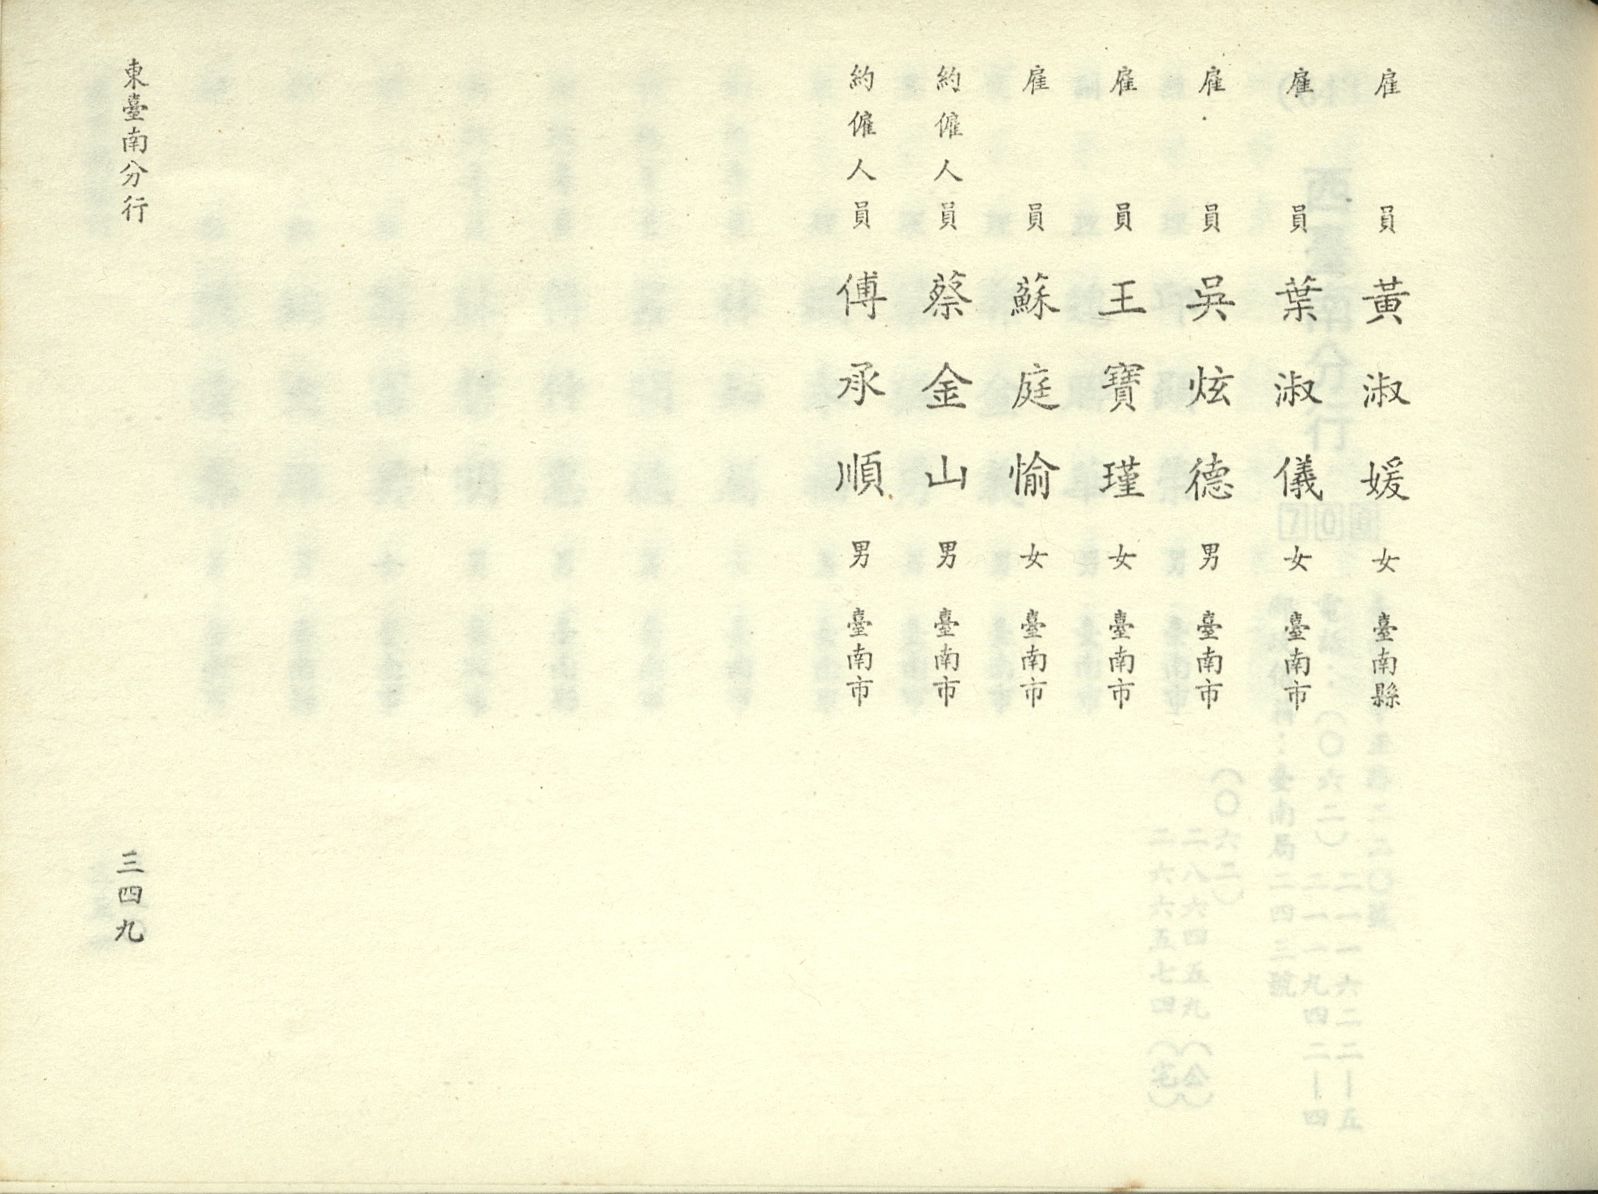 雇員 黃淑媛 女 臺南縣
雇員 葉淑儀 女 臺南市
雇員 吳炫德 男 臺南市
雇員 王寶瑾 女 臺南市
雇員 蘇庭愉 女 臺南市
約僱人員 蔡金山 男 臺南市
約僱人員 傅承順 男 臺南市
東臺南分行
三四九